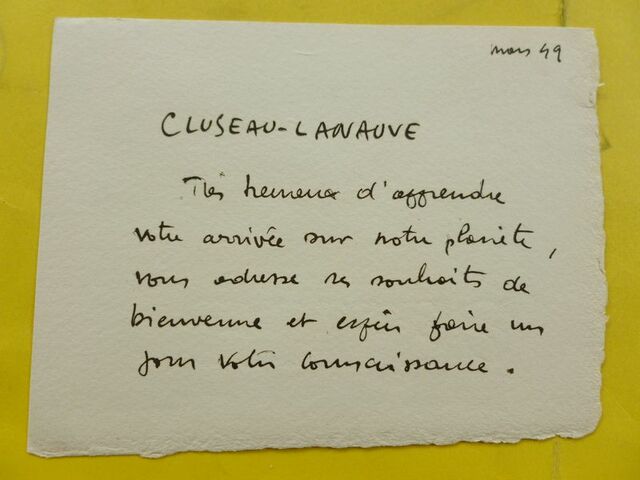 mars 49
CLUSEAU-LANAUVE
Très heureux d'apprendre
votre arrivée sur notre planète,
vous adresse ses souhaits de
bienvenue et espère faire un
jour votre connaissance.